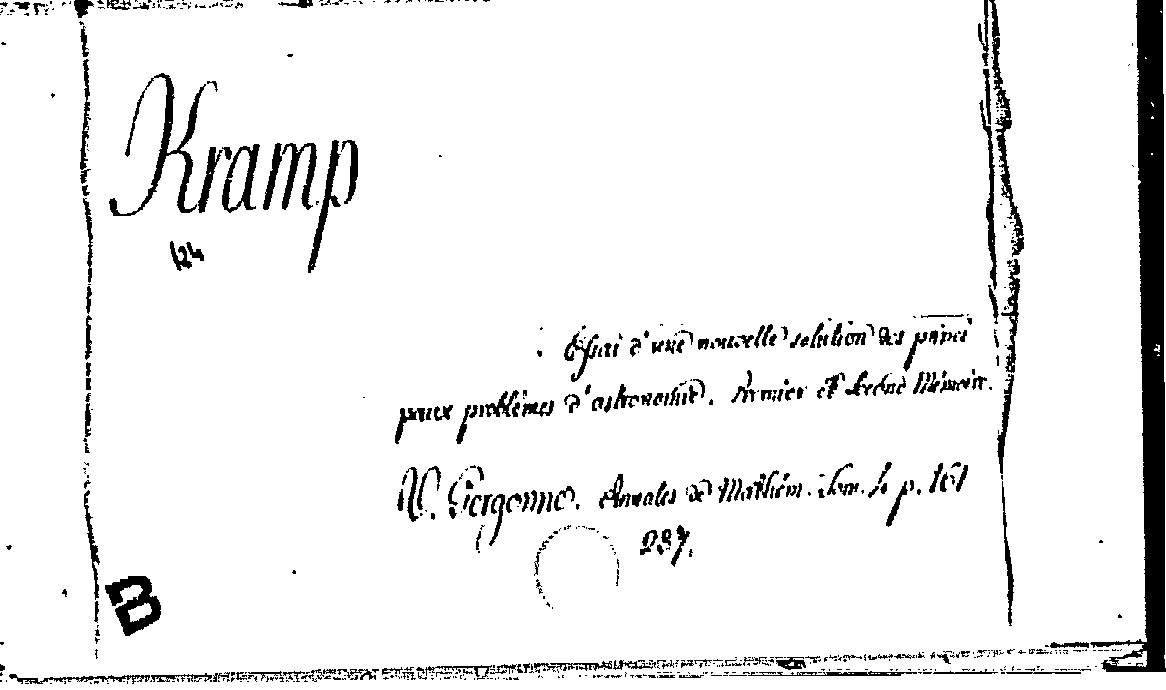 Kramp
124
Essai d'une nouvelle solution des princi
paux problèmes d'astronomie. Premier et second Mémoire.
V. Gergonne. Annales de Mathém. Tom. 4 p. 161
237.
B